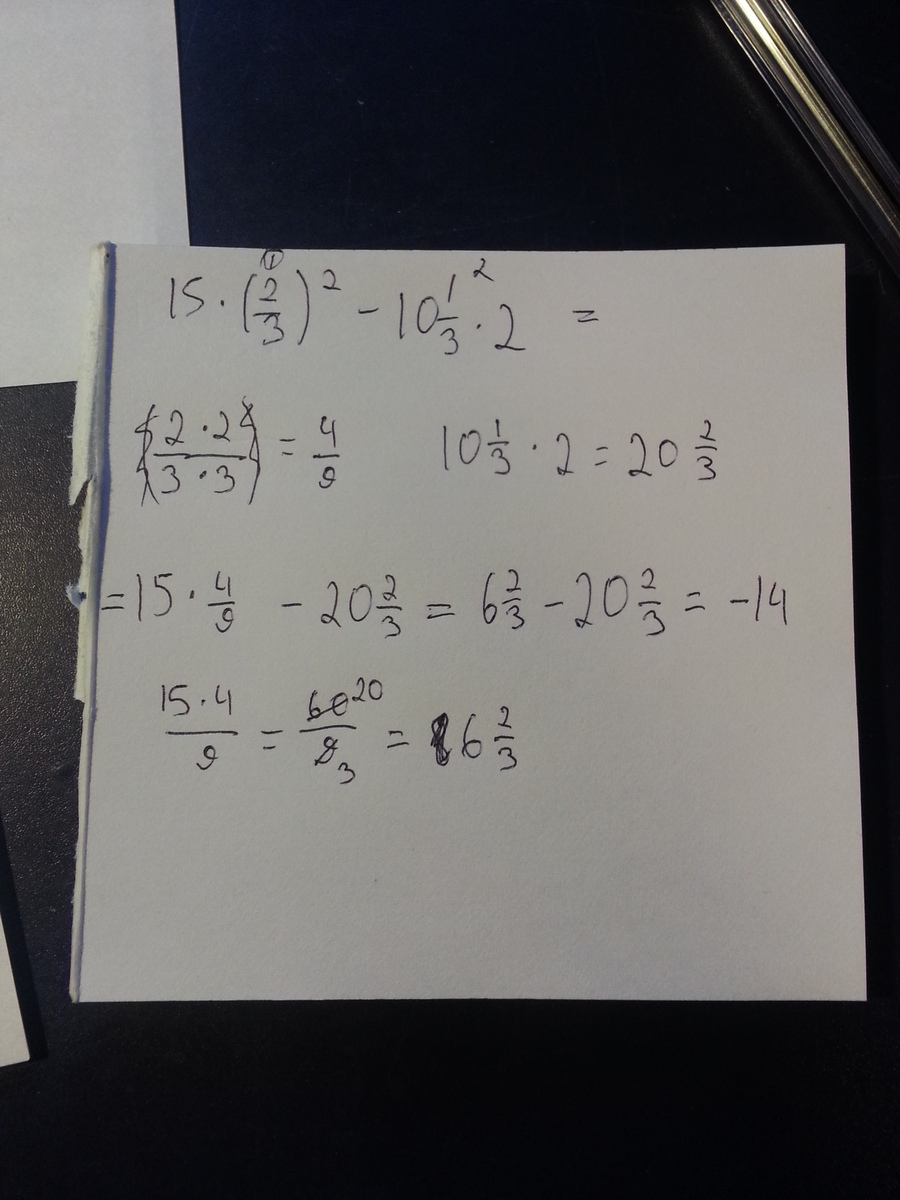 15 · (2/3)² - 10 1/3 · 2 =
① 2
(2 · 2 / 3 · 3) = 4/9    10 1/3 · 2 = 20 2/3
= 15 · 4/9 - 20 2/3 = 6 2/3 - 20 2/3 = -14
15 · 4 / 9 = 60 20 / 9 3 = 6 2/3